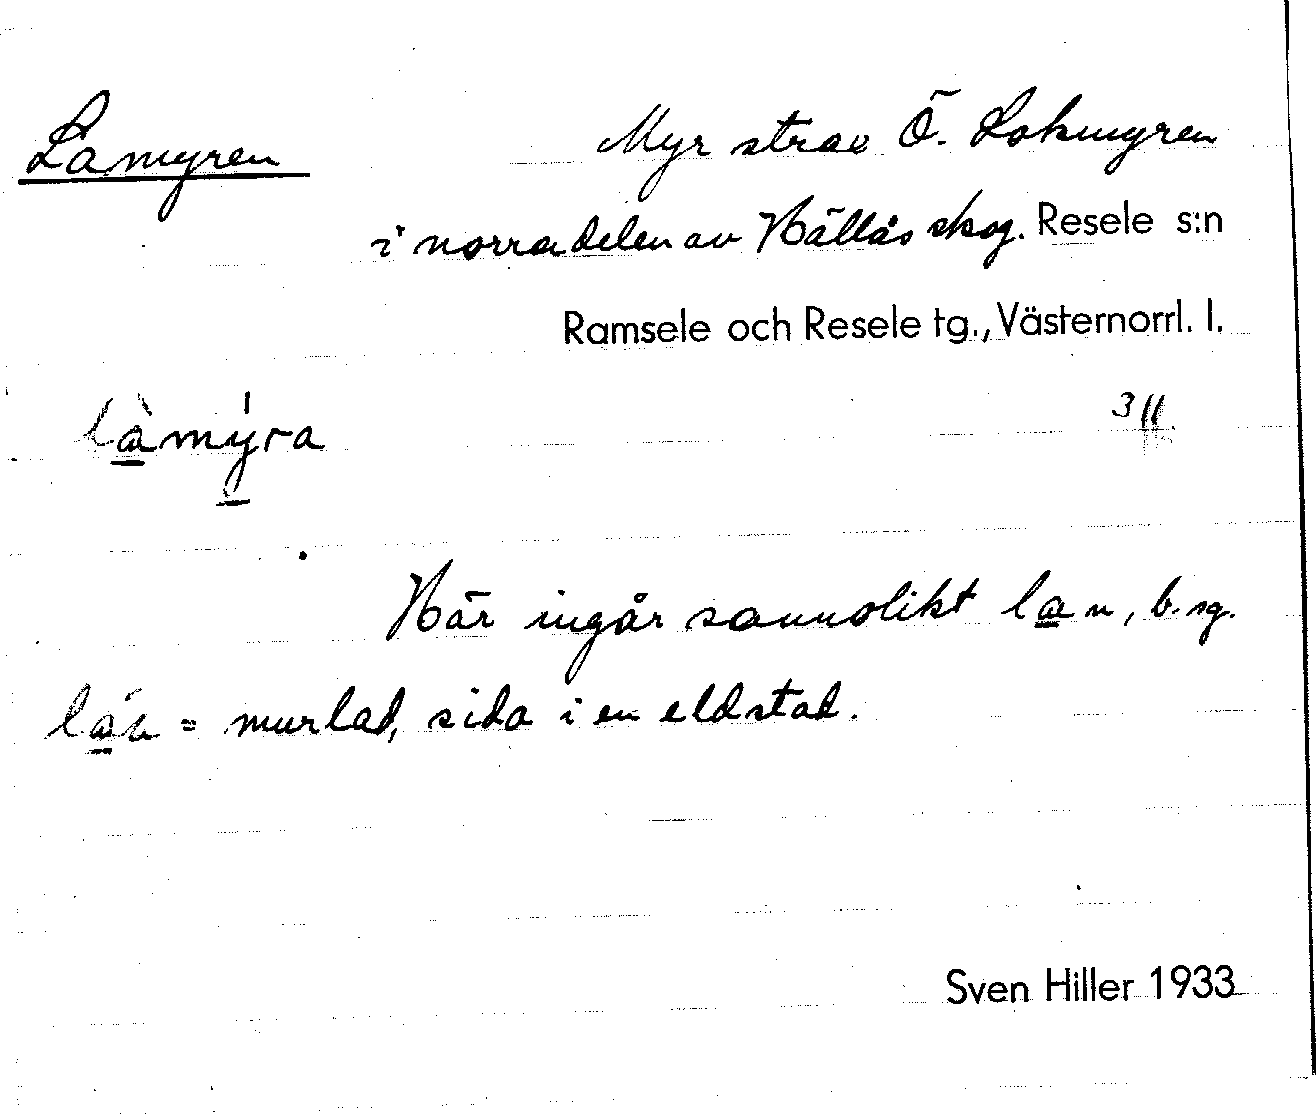 Lamyren
Myr strax Ö. Lokmyren
i norra delen av Hällås skog. Resele s:n
Ramsele och Resele tg., Västernorrl. l.
làmýra
3 11
Här ingår sannolikt la n, b. sg.
= murlad, sida i en eldstad.
Sven Hiller 1933